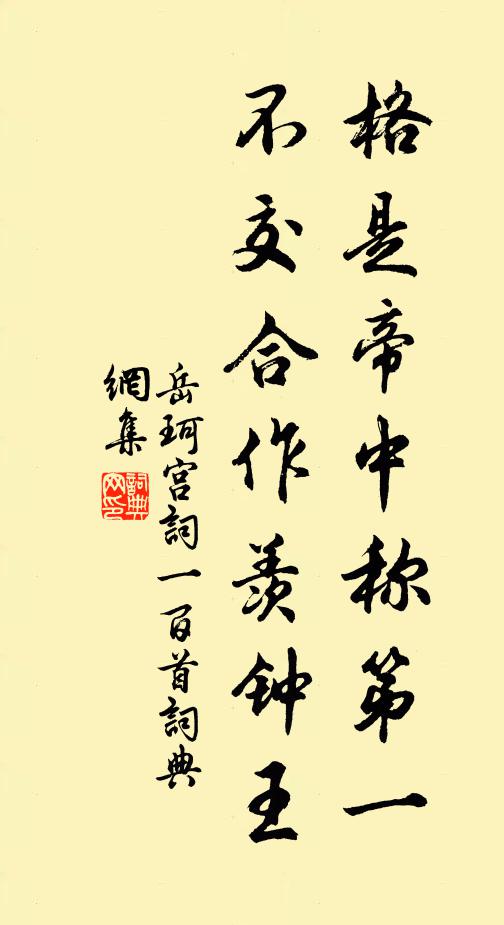 格是帝中称第一
不交合作羡钟王
岳珂宫詞一百首詞典
網集
詞典
网印